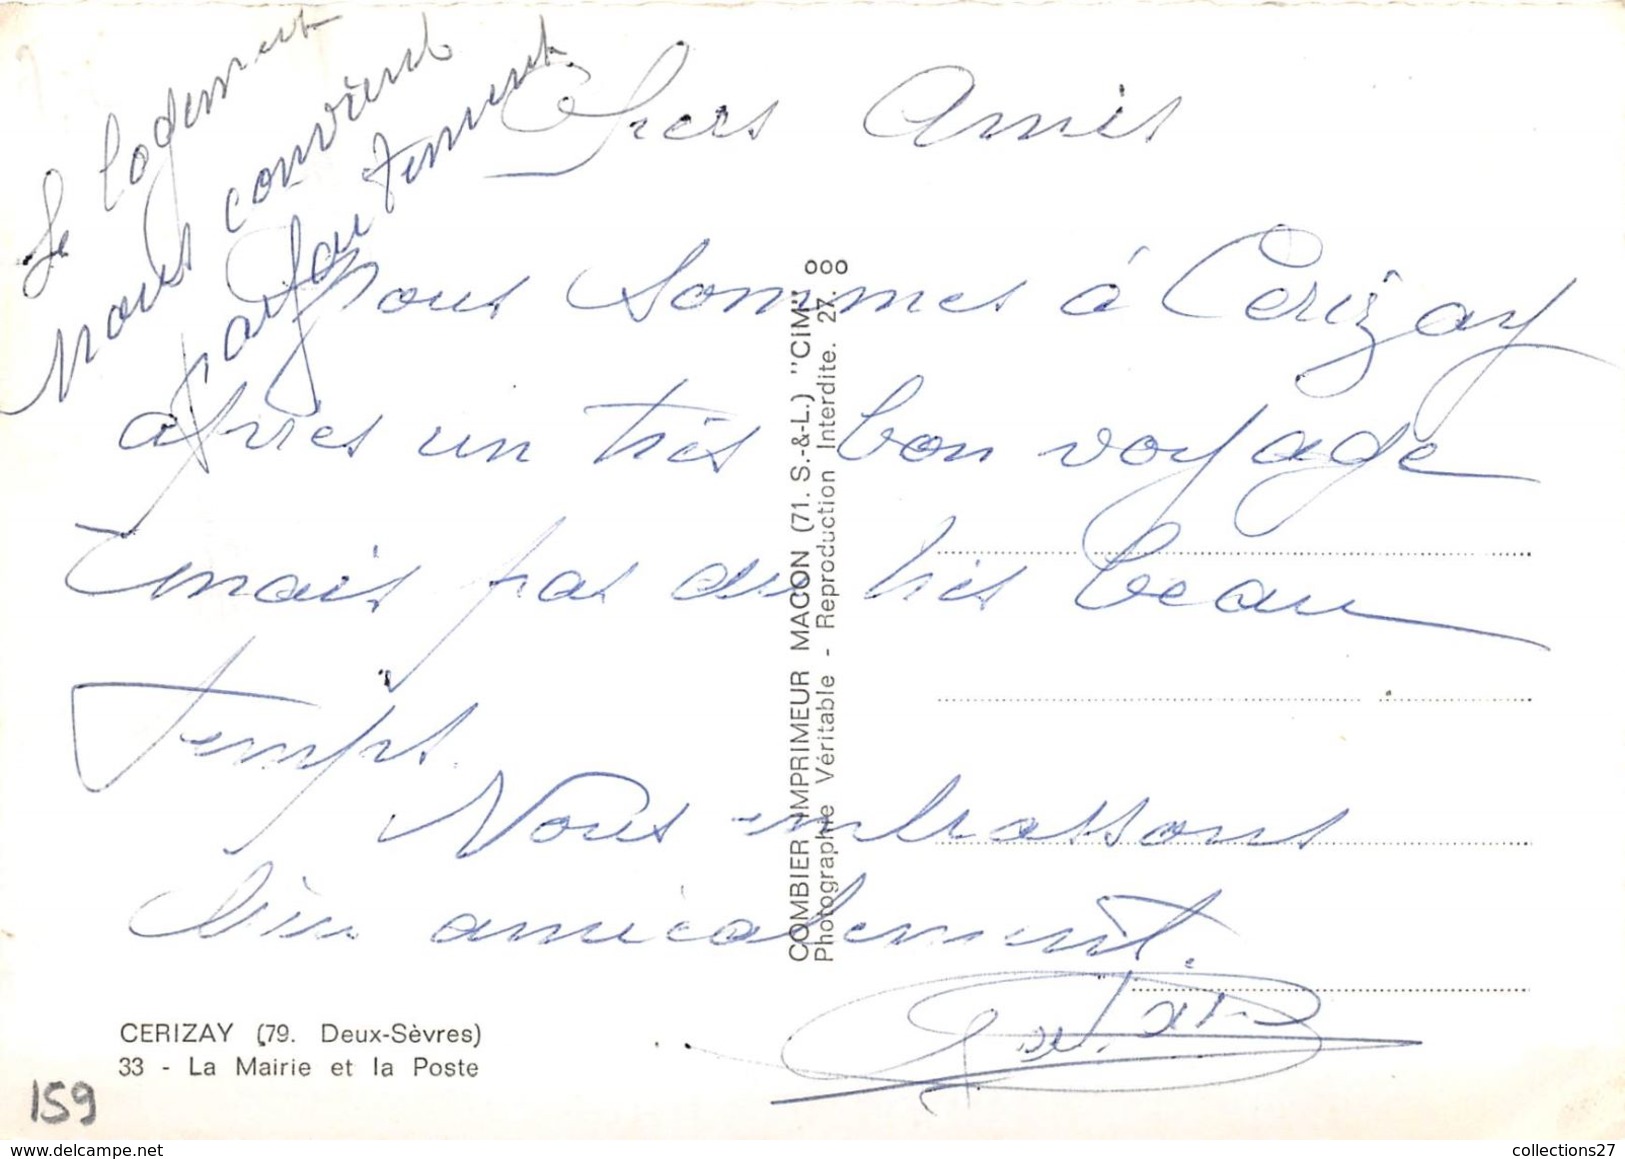 Le logement
nous convient
parfaitement.
Chers Amis
Nous sommes à Cerizay
après un très bon voyage
mais pas du très beau
temps.
Nous embrassons
bien amicalement.
COMBIER IMPRIMEUR MACON (71. S.-&-L.) "CIM"
Photographie Véritable - Reproduction Interdite. 27. 000
CERIZAY (79. Deux-Sèvres)
33 - La Mairie et la Poste
159
collections27